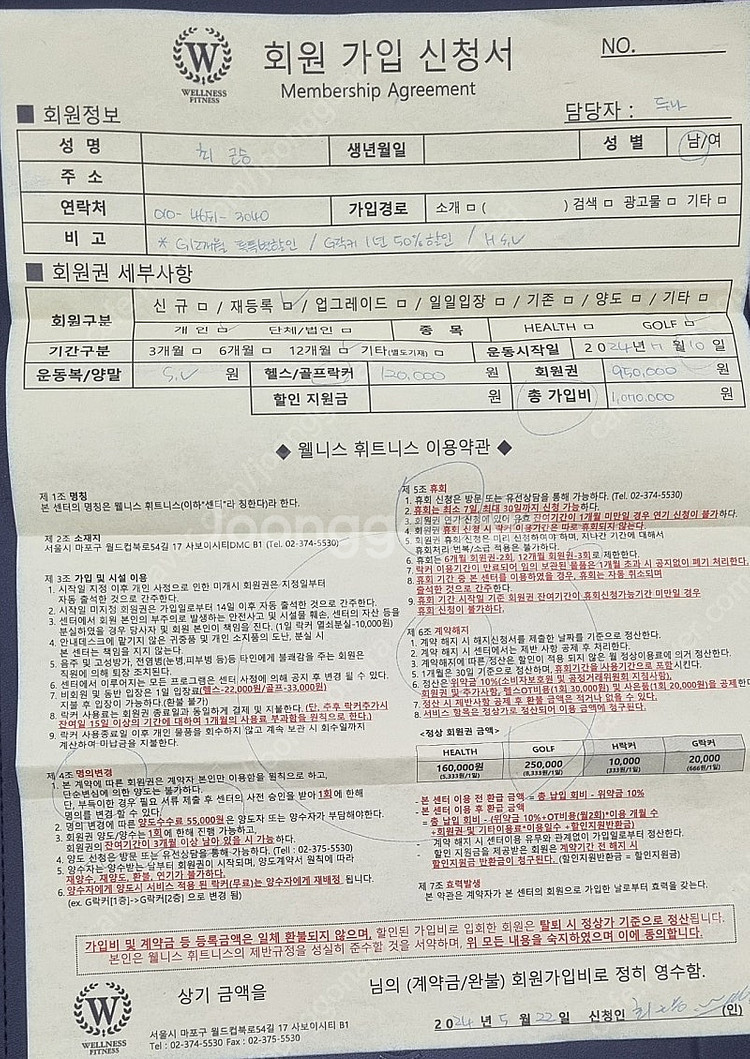 W
WELLNESS
FITNESS
회원 가입 신청서
Membership Agreement
NO.
■ 회원정보
담당자 :
성 명 최 생년월일 성 별 남/여
주 소
연락처 010- 3040 가입경로 소개 □ ( ) 검색 □ 광고물 □ 기타 □
비 고 * G12개월 특별할인 / G락커 1년 50%할인 / H S.V
■ 회원권 세부사항
회원구분 신 규 □ / 재등록 □ / 업그레이드 □ / 일일입장 □ / 기존 □ / 양도 □ / 기타 □
개 인 □ 단체/법인 □ 종 목 HEALTH □ GOLF □
기간구분 3개월 □ 6개월 □ 12개월 □ 기타(별도기재) □ 운동시작일 2024년 월 10 일
운동복/양말 S.V 원 헬스/골프락커 120,000 원 회원권 950,000 원
할인 지원금 원 총 가입비 1,070,000 원
◆ 웰니스 휘트니스 이용약관 ◆
제 1조 명칭
본 센터의 명칭은 웰니스 휘트니스(이하"센터"라 칭한다)라 한다.
제 2조 소재지
서울시 마포구 월드컵북로54길 17 사보이시티DMC B1 (Tel. 02-374-5530)
제 3조 가입 및 시설 이용
1. 시작일 지정 이후 개인 사정으로 인한 미개시 회원권은 지정일부터
자동 출석한 것으로 간주한다.
2. 시작일 미지정 회원권은 가입일로부터 14일 이후 자동 출석한 것으로 간주한다.
3. 센터에서 회원 본인의 부주의로 발생하는 안전사고 및 시설물 훼손, 센터의 자산 등을
분실하였을 경우 당사자 및 회원 본인이 책임을 진다. (1일 락커 열쇠분실-10,000원)
4. 안내데스크에 맡기지 않은 귀중품 및 개인 소지품의 도난, 분실 시
본 센터는 책임을 지지 않는다.
5. 음주 및 고성방가, 전염병(눈병,피부병 등)등 타인에게 불쾌감을 주는 회원은
직원에 의해 퇴장 조치된다.
6. 센터에서 이루어지는 모든 프로그램은 센터 사정에 의해 공지 후 변경 될 수 있다.
7. 비회원 및 동반 입장은 1일 입장료(헬스-22,000원/골프-33,000원)
지불 후 입장이 가능하다.(환불 불가)
8. 락커 사용료는 회원권 종료일과 동일하게 결제 및 지불한다. (단, 추후 락커추가시
잔여일 15일 이상의 기간에 대하여 1개월의 사용료 부과함을 원칙으로 한다.)
9. 락커 사용종료일 이후 개인 물품을 회수하지 않고 계속 보관 시 회수일까지
계산하여 미납금을 지불한다.
제 4조 명의변경
1. 본 계약에 따른 회원권은 계약자 본인만 이용함을 원칙으로 하고,
단순변심에 의한 양도는 불가하다.
단, 부득이한 경우 필요 서류 제출 후 센터의 사전 승인을 받아 1회에 한해
명의를 변경 할 수 있다.
2. 명의 변경에 따른 양도수수료 55,000원은 양도자 또는 양수자가 부담해야한다.
3. 회원권 양도/양수는 1회에 한해 진행 가능하고,
회원권의 잔여기간이 3개월 이상 남아 있을 시 가능하다.
4. 양도 신청은 방문 또는 유선상담을 통해 가능하다. (Tel : 02-375-5530)
5. 양수자는 양수받는 날부터 회원권이 시작되며, 양도계약서 원칙에 따라
재양수, 재양도, 환불, 연기가 불가하다.
6. 양수자에게 양도시 서비스 적용 된 락커(무료)는 양수자에게 재배정 됩니다.
(ex. G락커[1층]->G락커[2층] 으로 변경 됨)
제 5조 휴회
1. 휴회 신청은 방문 또는 유선상담을 통해 가능하다. (Tel. 02-374-5530)
2. 휴회는 최소 7일, 최대 30일까지 신청 가능하다.
3. 회원권 연기 신청에 있어 유효 잔여기간이 1개월 미만일 경우 연기 신청이 불가하다.
4. 회원권 휴회 신청 시 락커 이용기간은 따로 휴회되지 않는다.
5. 회원권 휴회 신청은 미리 신청하여야 하며, 지나간 기간에 대해서
휴회처리 번복/소급 적용은 불가하다.
6. 휴회는 6개월 회원권-2회, 12개월 회원권-3회로 제한한다.
7. 락커 이용기간이 만료되어 임의 보관된 물품은 1개월 초과 시 공지없이 폐기 처리한다.
8. 휴회 기간 중 본 센터를 이용하였을 경우, 휴회는 자동 취소되며
출석한 것으로 간주한다.
9. 휴회 기간 시작일 기준 회원권 잔여기간이 휴회신청가능기간 미만일 경우
휴회 신청이 불가하다.
제 6조 계약해지
1. 계약 해지 시 해지신청서를 제출한 날짜를 기준으로 정산한다.
2. 계약 해지 시 센터에서는 제반 사항 공제 후 처리한다.
3. 계약해지에 따른 정산은 할인이 적용 되지 않은 월 정상이용료에 의거 정산한다.
5. 1개월은 30일 기준으로 정산하며, 휴회기간을 사용기간으로 포함시킨다.
6. 정산은 위약금 10%(소비자보호원 및 공정거래위원회 지침사항),
회원권 및 추가사항, 헬스OT비용(1회 30,000원) 및 사은품(1회 20,000원)을 공제한
7. 정산 시 제반사항 공제 후 환불 금액은 적거나 없을 수 있다.
8. 서비스 항목은 정상가로 정산되어 이용 금액에 청구된다.
<정상 회원권 금액>
HEALTH GOLF H락커 G락커
160,000원 250,000 10,000 20,000
(5,333원/1일) (8,333원/1일) (333원/1일) (666원/1일)
- 본 센터 이용 전 환급 금액 = 총 납입 회비 - 위약금 10%
- 본 센터 이용 후 환급 금액
= 총 납입 회비 - (위약금 10%+OT비용(월2회)*이용 개월 수
+회원권 및 기타이용료*이용일수 +할인지원반환금)
- 계약 해지 시 센터이용 유무와 관계없이 가입일로부터 정산한다.
- 할인 지원금을 제공받은 회원은 계약기간 전 해지 시
할인지원금 반환금이 청구된다. (할인지원반환금 = 할인지원금)
제 7조 효력발생
본 약관은 계약자가 본 센터의 회원으로 가입한 날로부터 효력을 갖는다.
가입비 및 계약금 등 등록금액은 일체 환불되지 않으며, 할인된 가입비로 입회한 회원은 탈퇴 시 정상가 기준으로 정산됩니다.
본인은 웰니스 휘트니스의 제반규정을 성실히 준수할 것을 서약하며, 위 모든 내용을 숙지하였으며 이에 동의합니다.
상기 금액을 님의 (계약금/완불) 회원가입비로 정히 영수함.
W
WELLNESS
FITNESS
서울시 마포구 월드컵북로54길 17 사보이시티 B1
Tel : 02-374-5530 Fax : 02-375-5530
2024 년 5 월 22 일 신청인 최 (인)